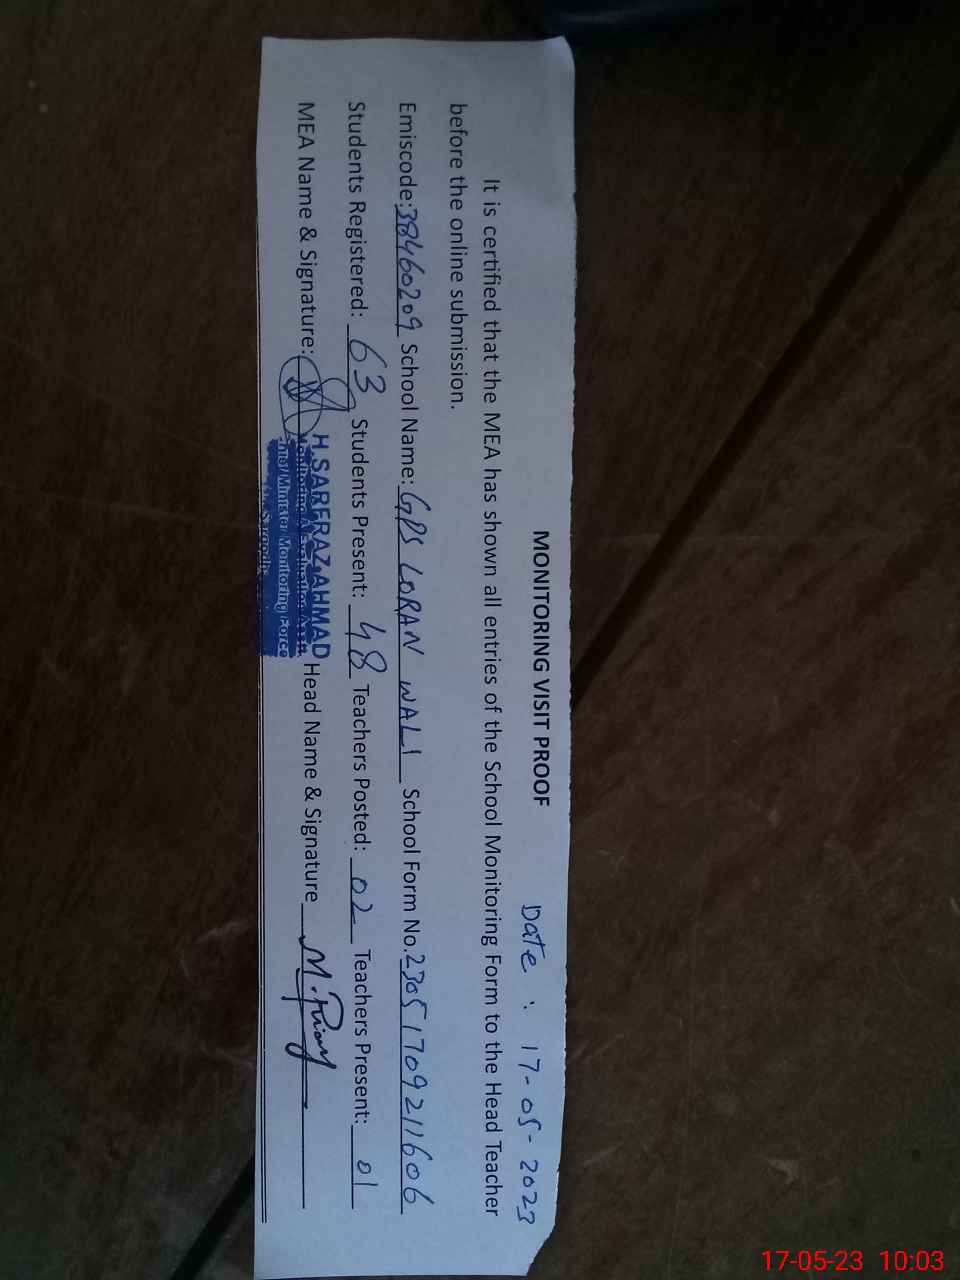 MONITORING VISIT PROOF Date : 17-05-2023
It is certified that the MEA has shown all entries of the School Monitoring Form to the Head Teacher
before the online submission.
Emiscode:38460209 School Name: GPS LORAN WALI School Form No.23051709211606
Students Registered: 63 Students Present: 48 Teachers Posted: 02 Teachers Present: 01
MEA Name & Signature: H.SARFRAZ AHMAD Head Name & Signature
Monitoring
Minister Monitoring Force
17-05-23 10:03